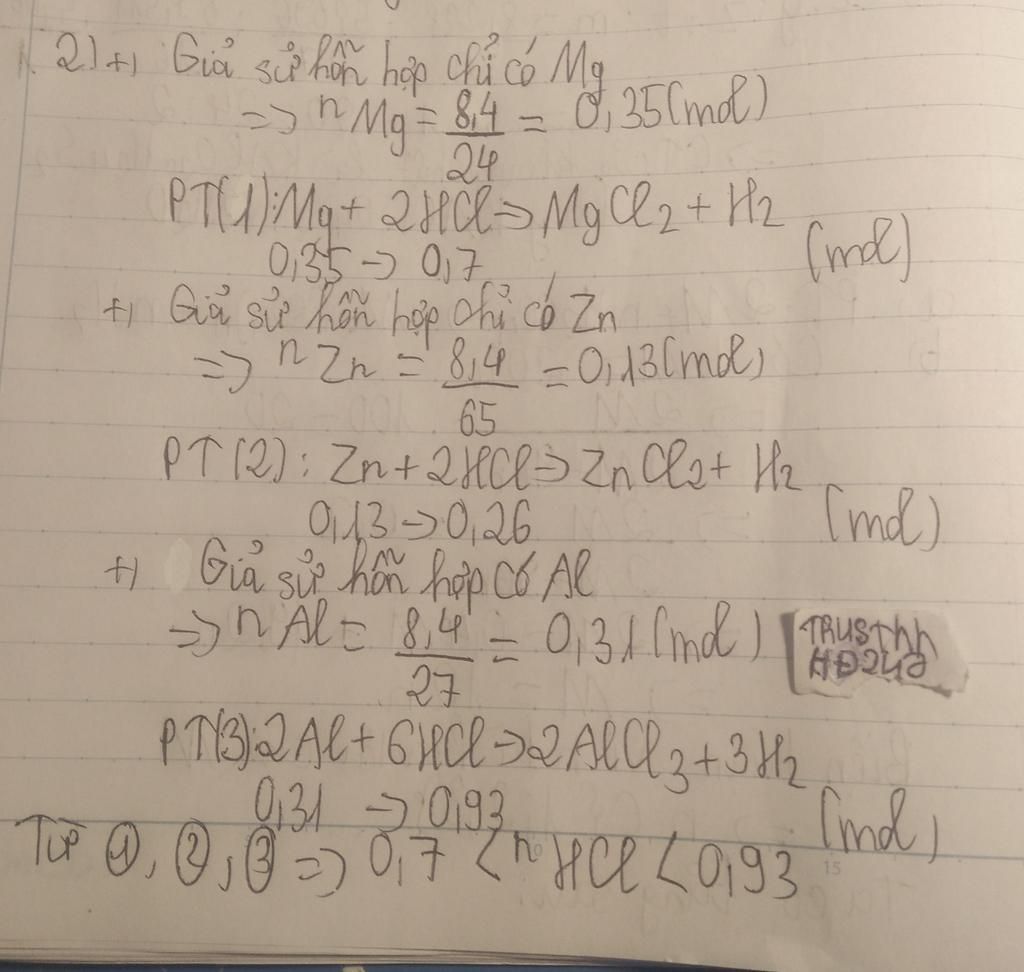 2) +) Giả sử hỗn hợp chỉ có Mg
=> nMg = 8,4/24 = 0,35(mol)
PT(1): Mg + 2HCl -> MgCl2 + H2
0,35 -> 0,7 (mol)
+) Giả sử hỗn hợp chỉ có Zn
=> nZn = 8,4/65 = 0,13(mol)
PT(2): Zn + 2HCl -> ZnCl2 + H2
0,13 -> 0,26 (mol)
+) Giả sử hỗn hợp có Al
=> nAl = 8,4/27 = 0,31(mol)
PT(3): 2Al + 6HCl -> 2AlCl3 + 3H2
0,31 -> 0,93 (mol)
Từ ①, ②, ③ => 0,7 < nHCl < 0,93
15